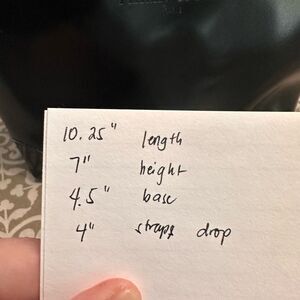 10.25" length
7" height
4.5" base
4" straps drop